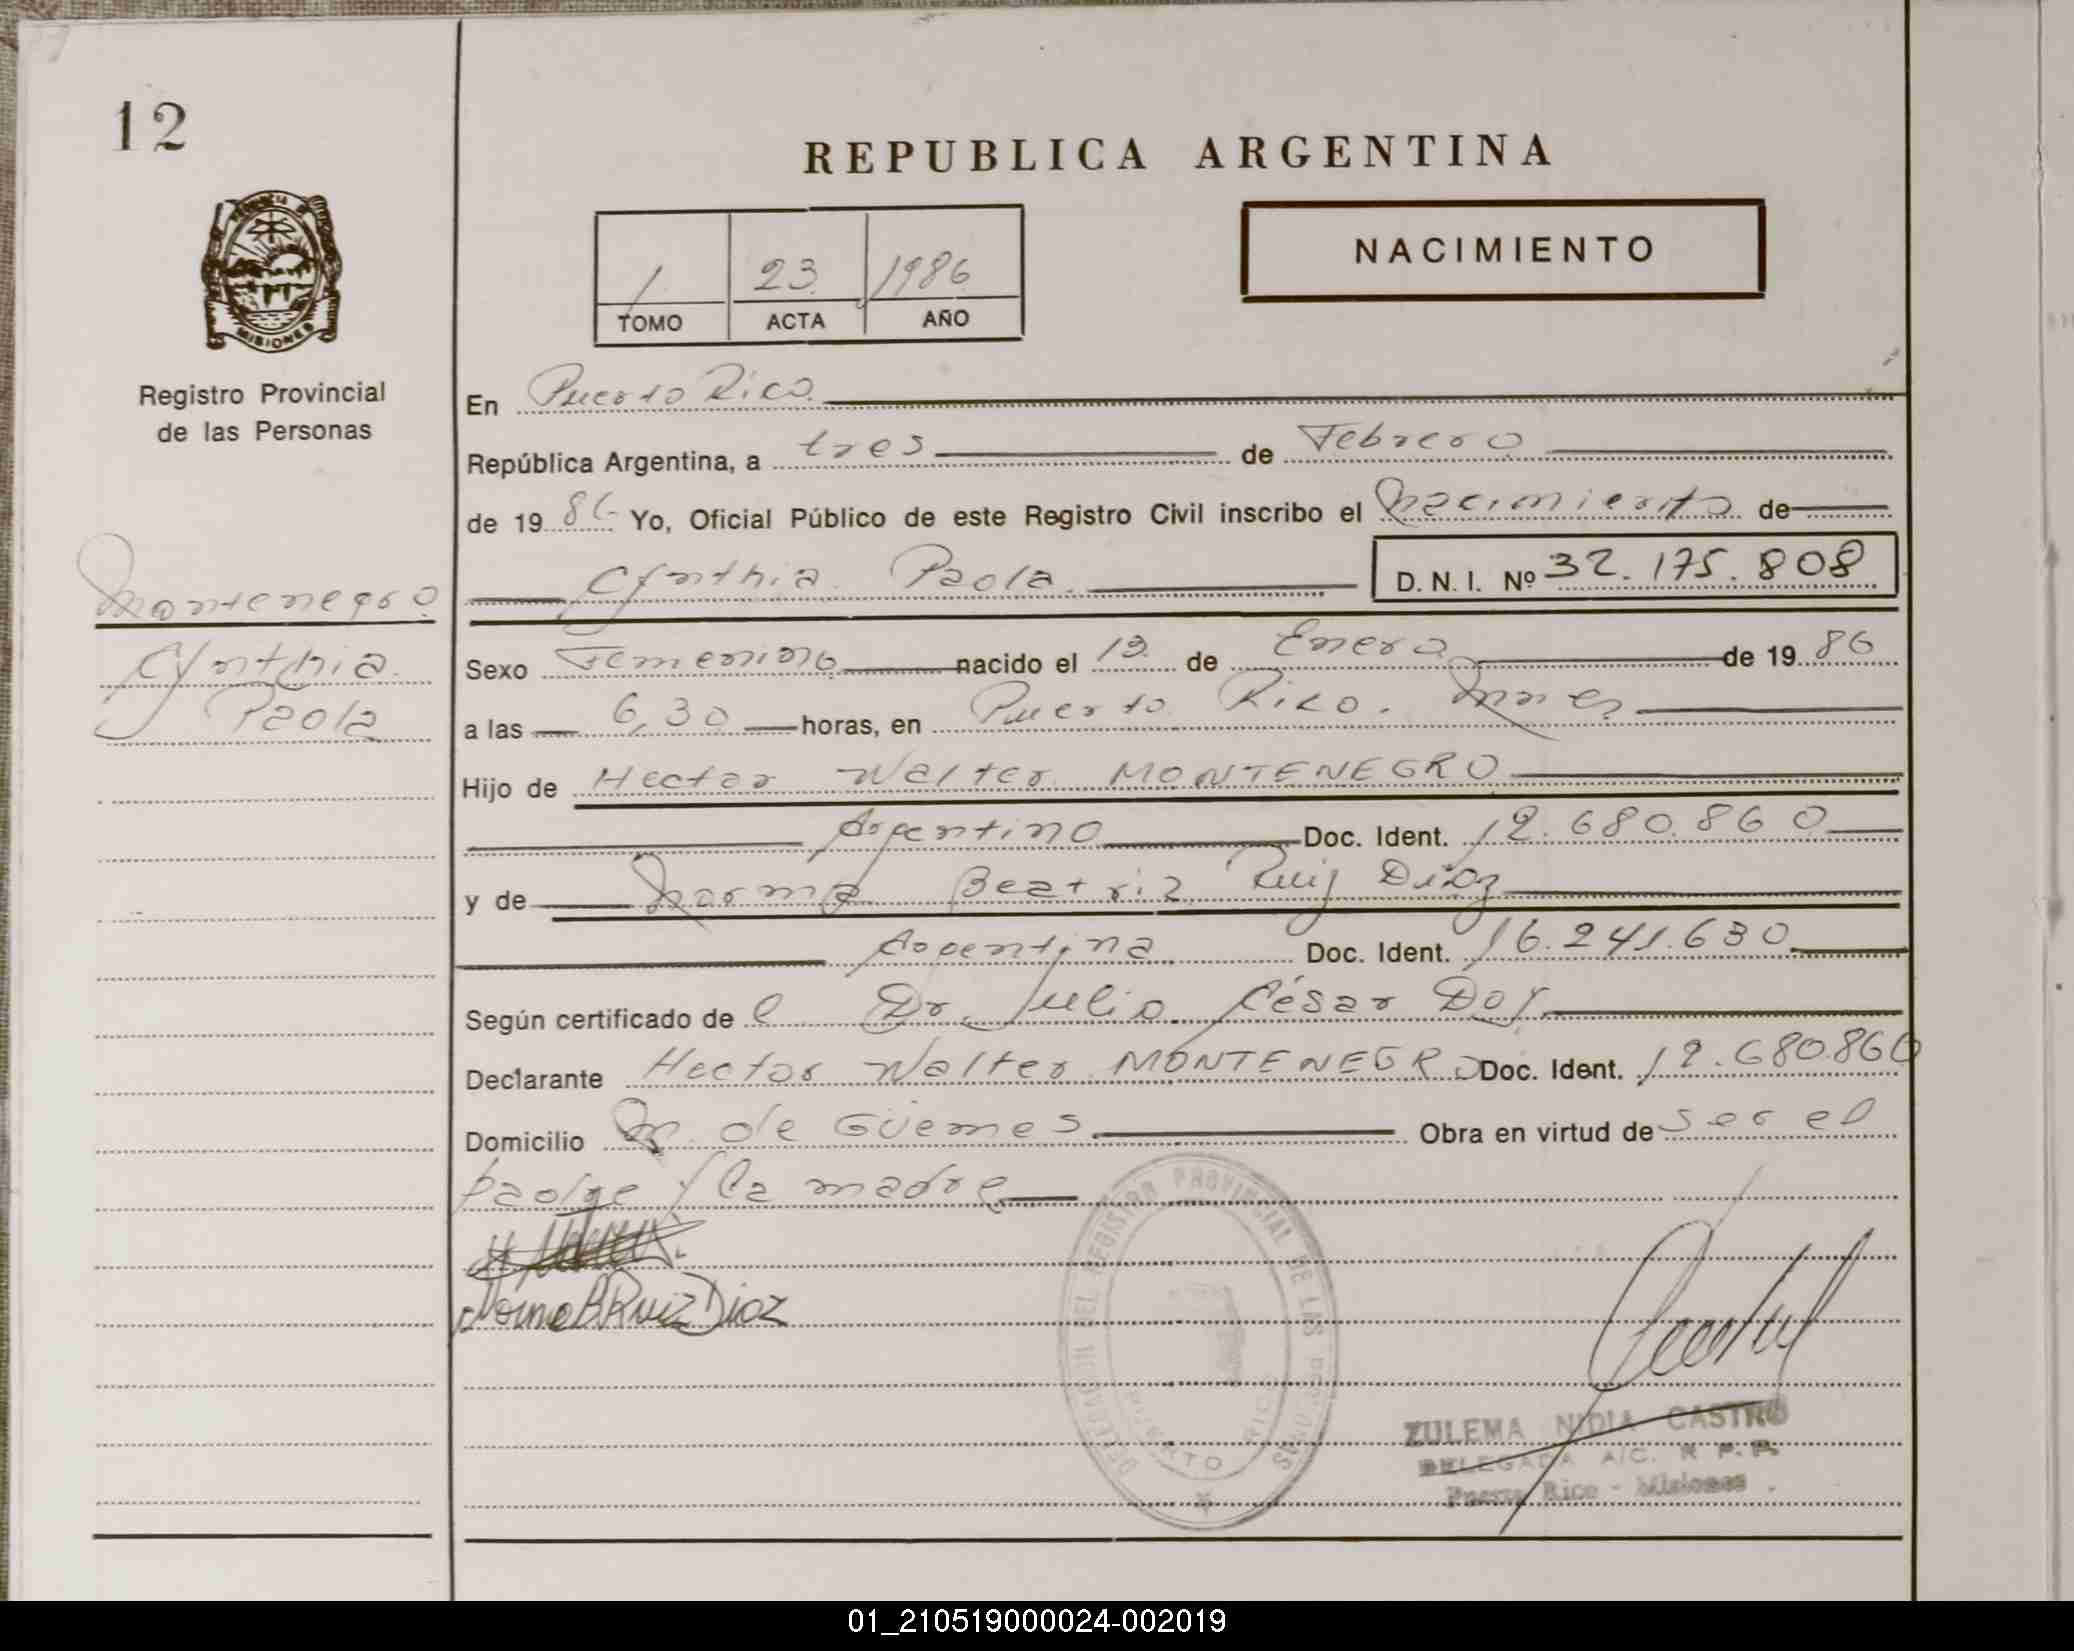 12
REPUBLICA ARGENTINA
NACIMIENTO
1 23 1986
TOMO ACTA AÑO
MISIONES
Registro Provincial
de las Personas
En Puerto Rico
República Argentina, a tres de Febrero
de 1986 Yo, Oficial Público de este Registro Civil inscribo el Nacimiento de
Cynthia Paola D.N.I. Nº 32.175.808
Montenegro
Cynthia
Paola
Sexo Femenino nacido el de Enero de 1986
a las 6,30 horas, en Puerto Rico. Mnes
Hijo de Hector Walter MONTENEGRO
Argentino Doc. Ident. 12.680.860
y de Norma Beatriz Ruiz Diaz
Argentina Doc. Ident. 16.241.630
Según certificado de l Dr. Julio César Doy
Declarante Hector Walter MONTENEGRO Doc. Ident. 12.680.860
Domicilio M. de Güemes Obra en virtud de ser el
padre y la madre
Norma B Ruiz Diaz
DELEGACION DEL REGISTRO PROVINCIAL DE LAS PERSONAS
PUERTO RICO
ZULEMA NIDIA CASTRO
DELEGADA A/C. R. P. P.
Puerto Rico - Misiones
01_210519000024-002019